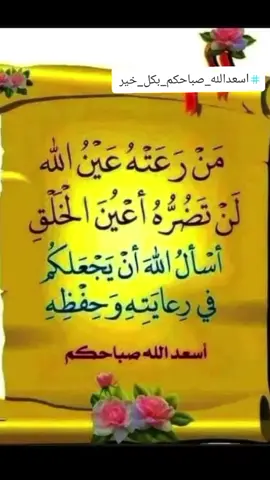 #اسعدالله_صباحكم_بكل_خير
مَنْ رَعَتْهُ عَيْنُ الله
لَنْ تَضُرُّهُ أَعْيُنَ الْخَلْقِ
أَسْأَلُ اللهَ أَنْ يَجْعَلَكُم
فِي رِعَايَتِهِ وَحِفْظِهِ
أسعد الله صباحكم